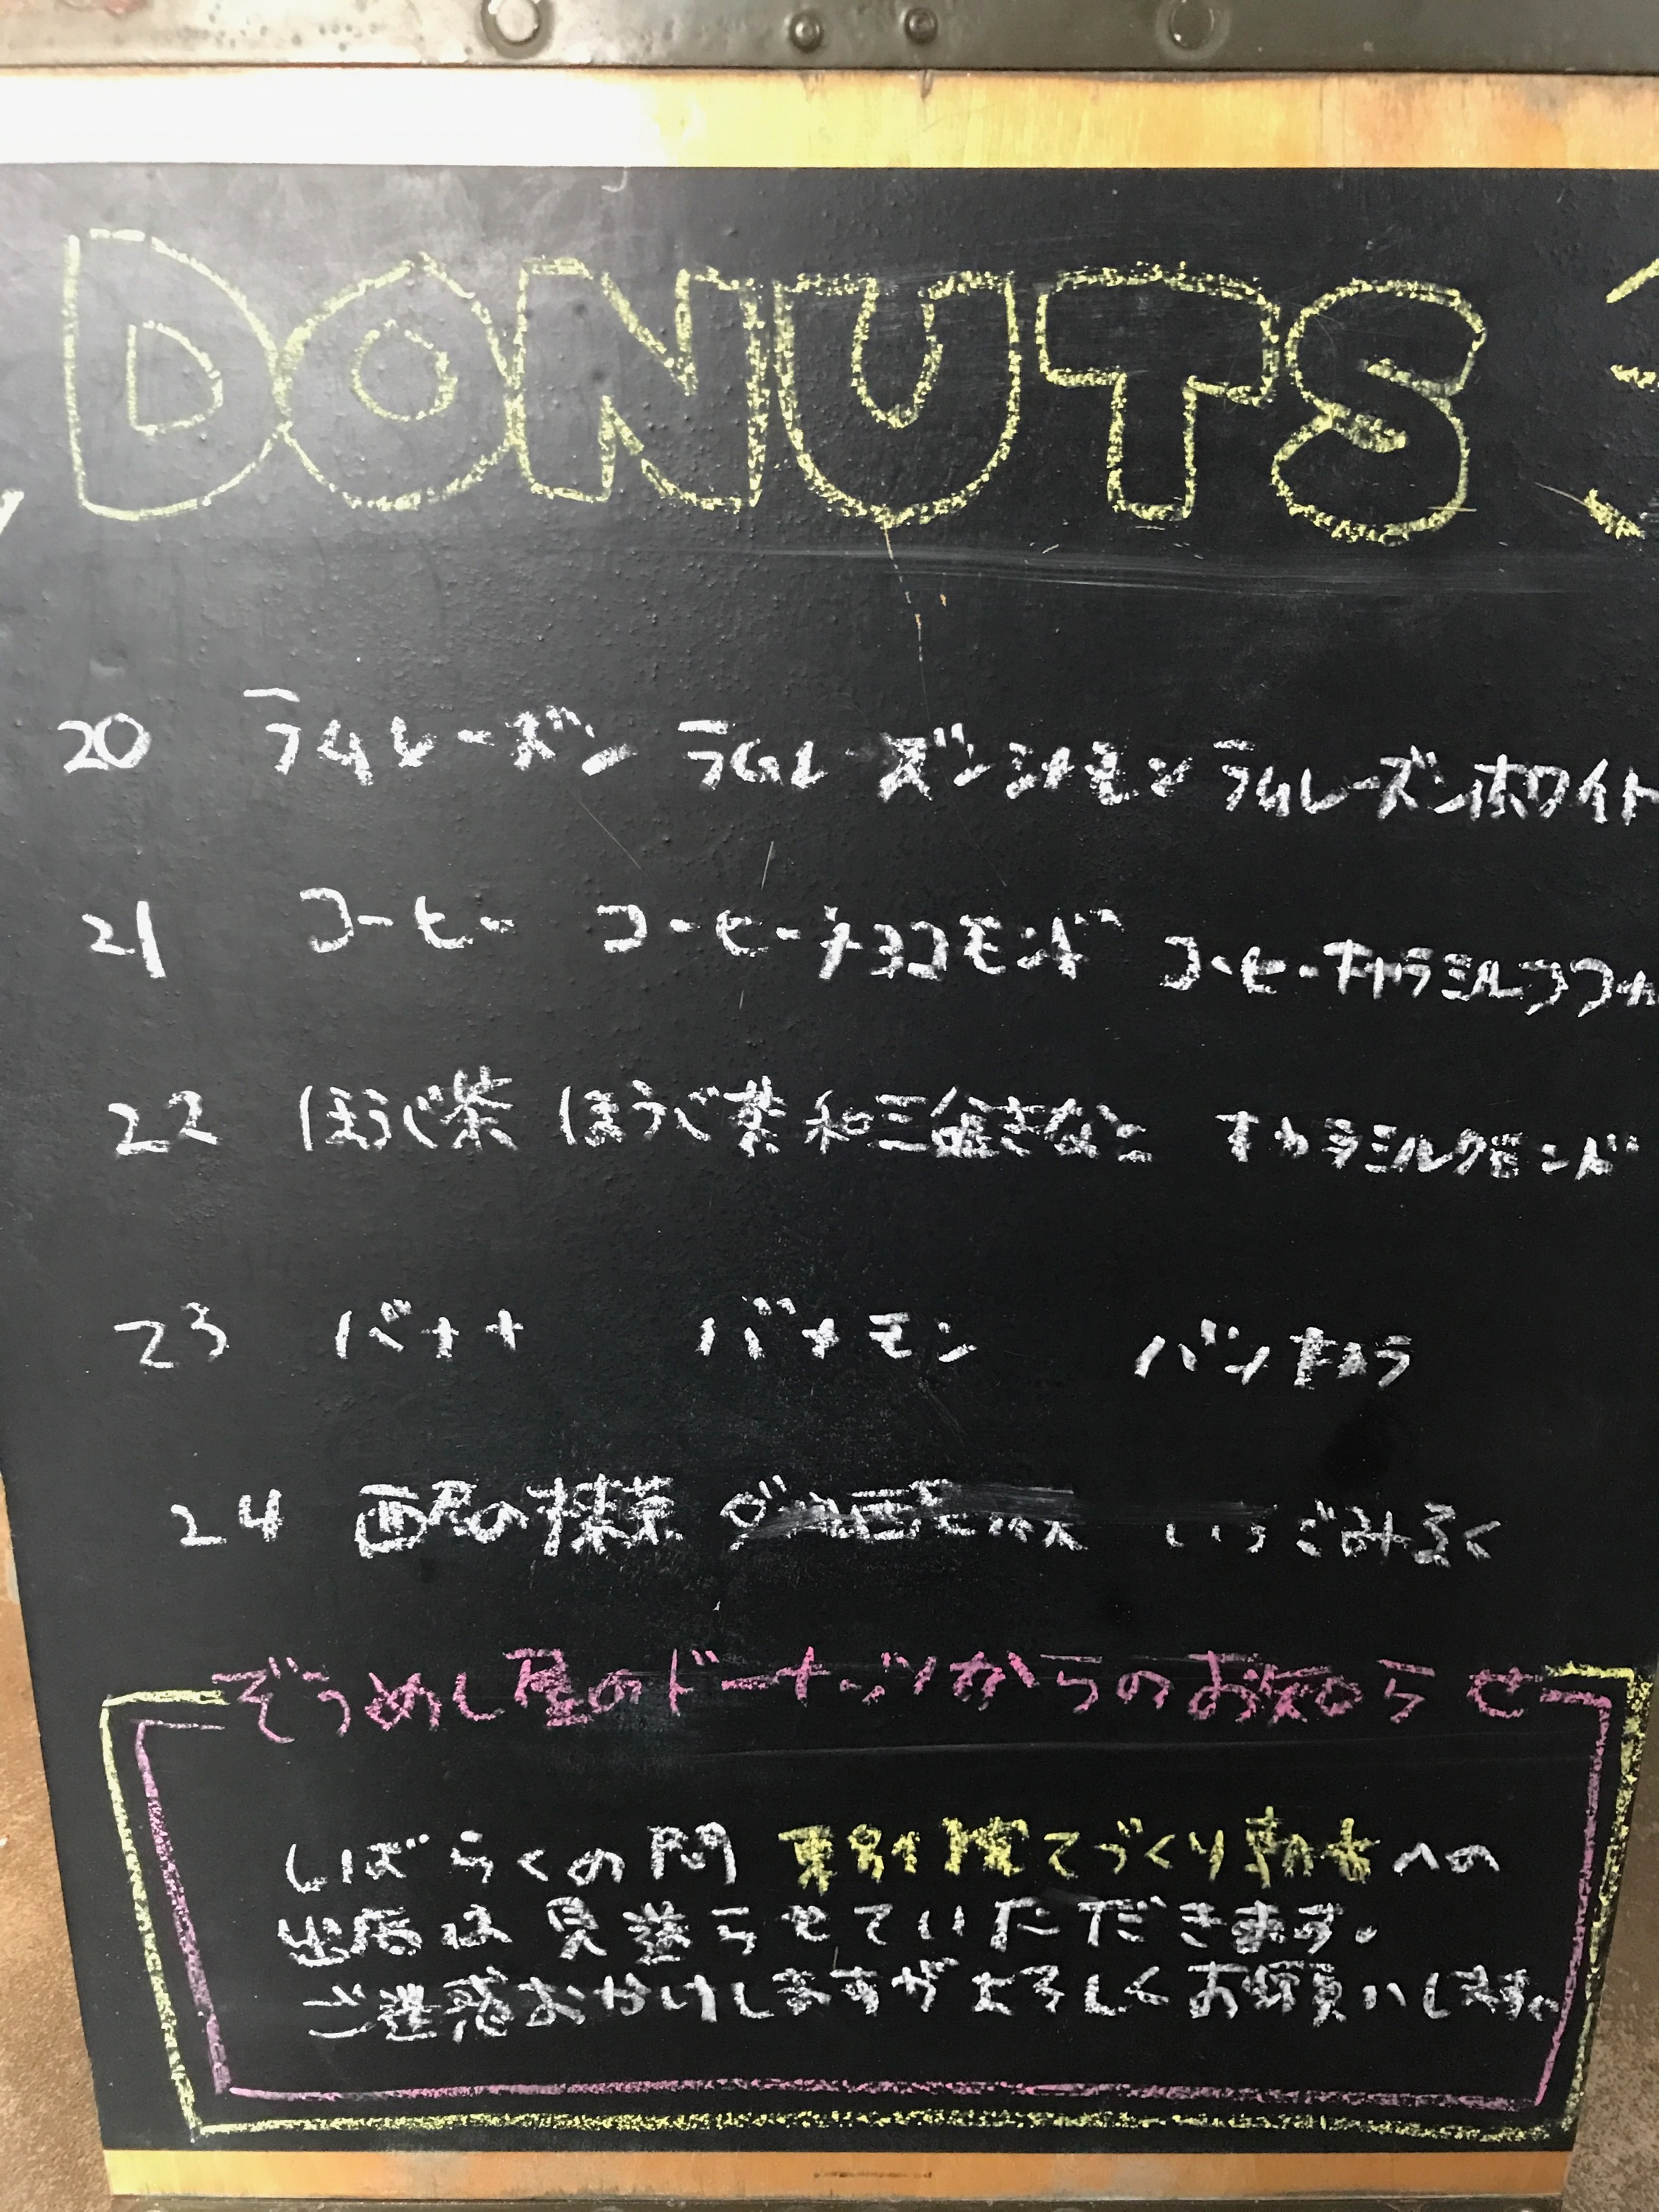 DONUTS
20 ラムレーズン ラムレーズンシナモン ラムレーズンホワイト
21 コーヒー コーヒーチョコモンド コーヒーキャラミルココ
22 ほうじ茶 ほうじ茶和三盆きなこ キャラミルクモンド
23 バナナ バナナモン バナナキャラ
24 西尾の抹茶 いちごみるく
ぞうめし屋のドーナッツからのお知らせ
しばらくの間 東別院てづくり朝市への
出店は見送らせていただきます。
ご迷惑おかけしますがよろしくお願いします。